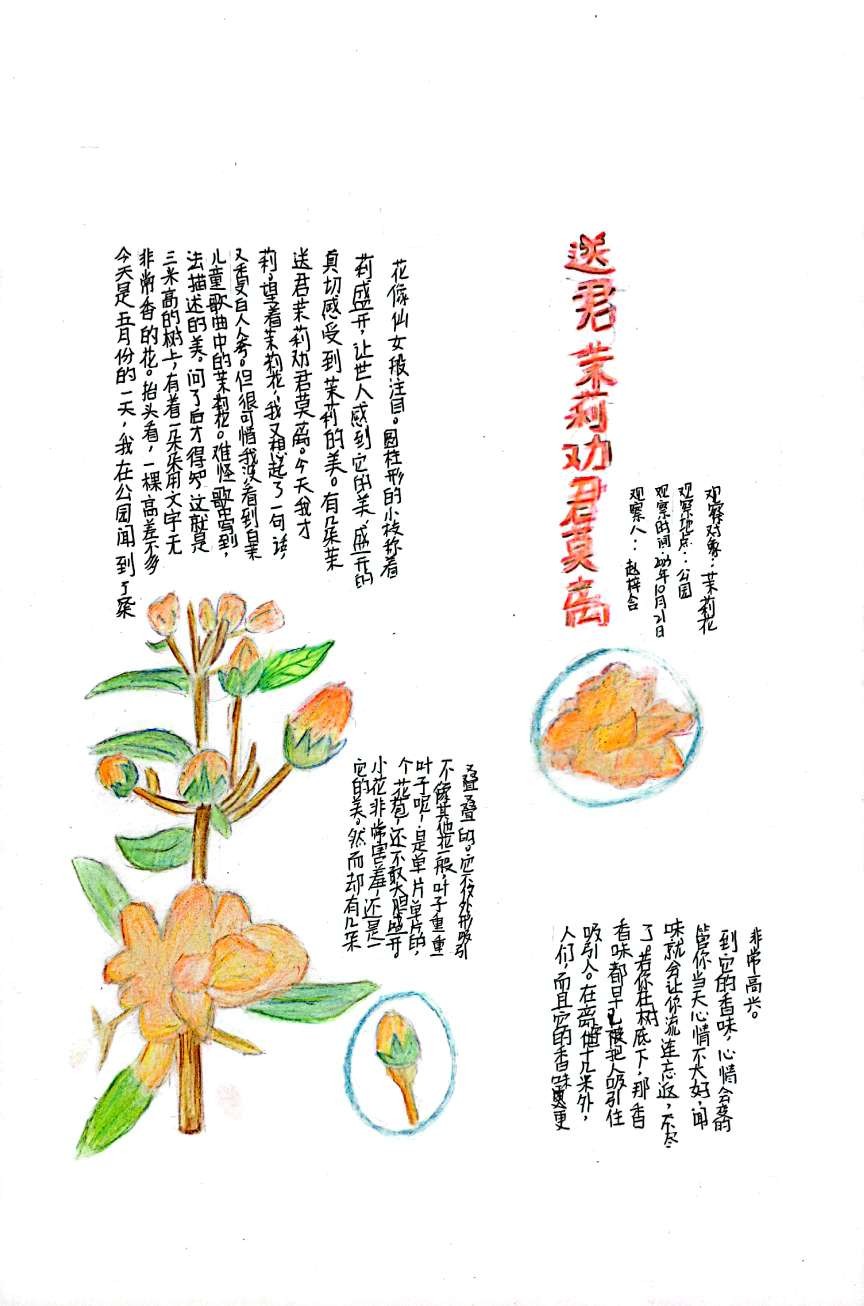 送君茉莉劝君莫离
观察对象：茉莉花
观察地点：公园
观察时间：2023年10月21日
观察人：赵梓含
今天是五月份的一天，我在公园闻到了朵
非常香的花。抬头看，一棵高差不多
三米高的树上，有着一朵朵用文字无
法描述的美。问了后才得知，这就是
儿童歌曲中的茉莉花。难怪歌中写到，
又香又白人人夸。但很可惜我没看到白茉
莉，望着茉莉花，我又想起了一句话，
送君茉莉劝君莫离。今天我才
真切感受到茉莉的美。有几朵茉
莉盛开，让世人感到它的美，盛开的
花像仙女般注目。圆柱形的小枝称着
它的美。然而却有几朵
小花非常害羞，还是一
个花苞，还不敢大胆盛开。
叶子呢，是单片单片的，
不像其他花一般，叶子重重
叠叠的。它不仅外形吸引
人们，而且它的香味更
吸引人。在离十几米外，
香味都早已被把人吸引住
了。若你在树底下，那香
味就会让你流连忘返，不尽
管你当天心情不太好，闻
到它的香味，心情会变的
非常高兴。